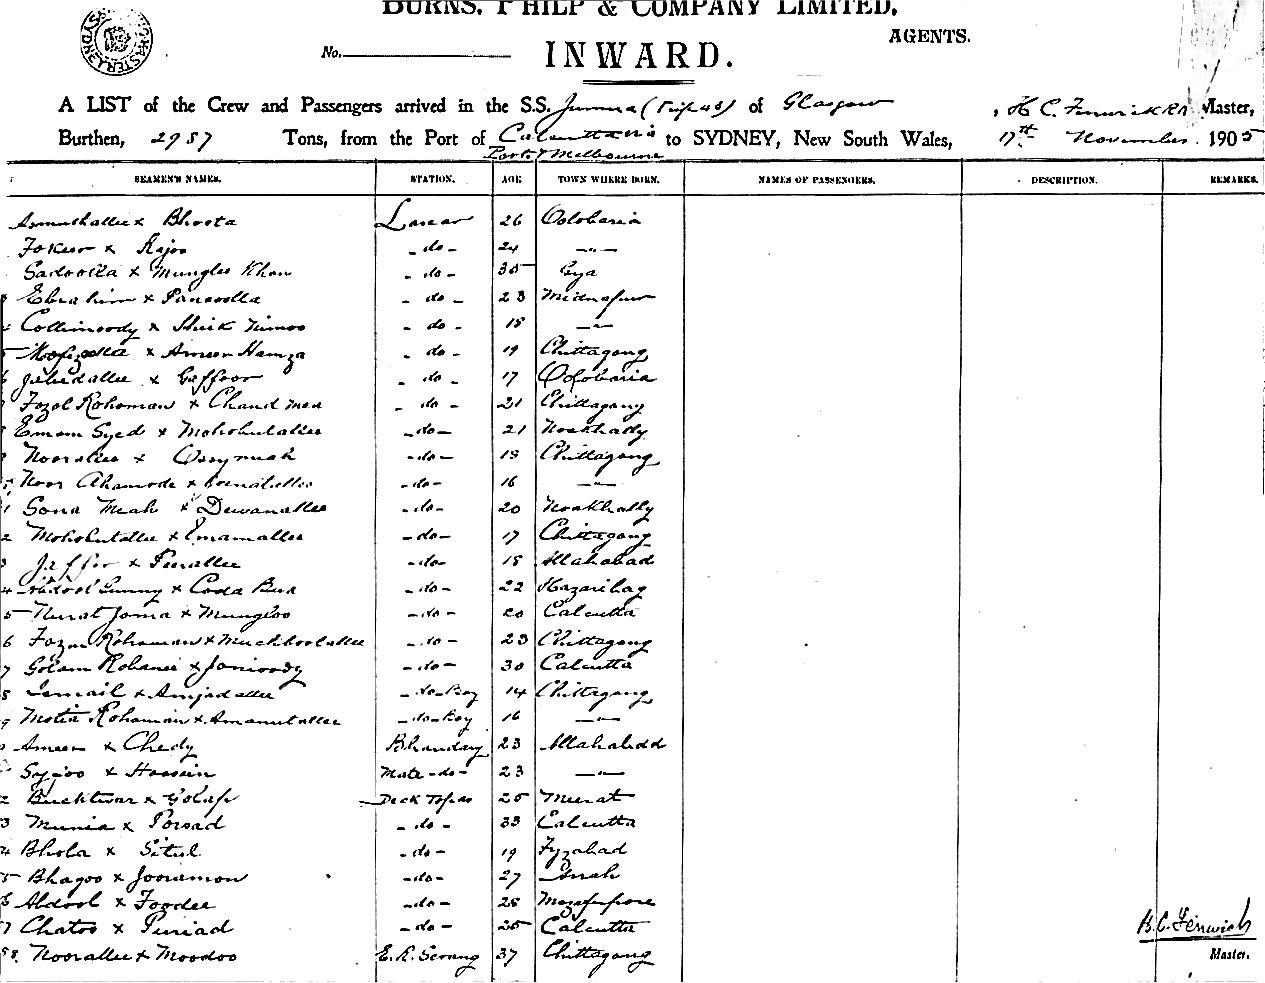 BURNS, PHILP & COMPANY LIMITED,
AGENTS.
No.
INWARD.
A LIST of the Crew and Passengers arrived in the S.S. Jumna of Glasgow , H C. Fenwick RR Master,
Burthen, 2987 Tons, from the Port of Calcutta via to SYDNEY, New South Wales, 17th November 1905
Ports & Melbourne
SEAMEN'S NAMES. STATION. AGE TOWN WHERE BORN. NAMES OF PASSENGERS. DESCRIPTION. REMARKS.
Asmuthallee x Bhoota Lascar 26 Oolobaria
Fokeer x Rajoo - do - 24 —"—
Sadoolla x Mungloo Khan - do - 35 Gya
Ebrahim x Panaoolla - do - 23 Midnapur
Collimoody x Sheik Nimoo - do - 18 —"—
Mofizolla x Ameer Hamza - do - 19 Chittagong
x Gaffoor - do - 17 Oolobaria
Fozol Rohoman x Chand Mea - do - 21 Chittagong
Emam Syed x Mohobutallee - do - 21 Noakhally
Noorallee x - do - 18 Chittagong
Noor Ahamode x - do - 16 —"—
1 Sona Meah x Dewanallee - do - 20 Noakhally
2 Mohobutallee x Emamallee - do - 17 Chittagong
3 Jaffer x Purallee - do - 18 Allahabad
4 Abdool Gunny x Coda Bux - do - 22 Hazaribag
5 Nurat Joma x Mungloo - do - 20 Calcutta
6 Fozur Rohoman x Muckboolallee - do - 23 Chittagong
7 Golam Robanee x Jonioody - do - 30 Calcutta
8 Ismail x Amjadallee - do - Boy 14 Chittagong
9 Motia Rohoman x Amanutallee - do - Boy 16 —"—
Ameer x Chedy Bhandary 23 Allahabad
x Hossein Mate - do - 23 —"—
2 Bucktwar x Golap Deck Topas 25 Meerat
3 Munia x Porsad - do - 33 Calcutta
4 Bhola x Situl - do - 19 Fyzabad
5 Bhagoo x Jooramon - do - 27 Arrah
6 Abdool x Foodee - do - 28 Mozufpore
7 Chatoo x Puniad - do - 25 Calcutta
58. Noorallee x Moodoo E.R. Serang 37 Chittagong
H.C. Fenwick
Master.